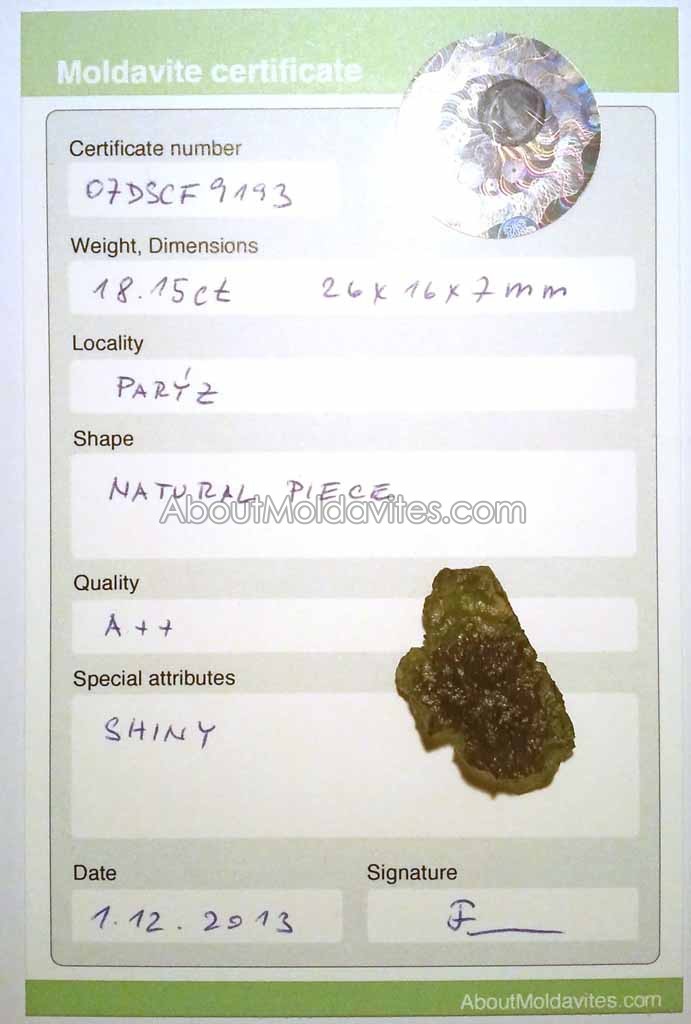 Moldavite certificate
Certificate number
07DSCF9193
Weight, Dimensions
18.15ct 26x16x7mm
Locality
PARÝZ
Shape
NATURAL PIECE
AboutMoldavites.com
Quality
A++
Special attributes
SHINY
Date Signature
1.12.2013
AboutMoldavites.com